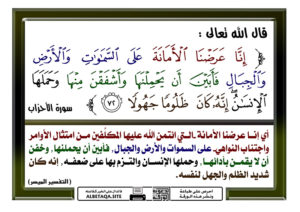 قال الله تعالى :
﴿ إِنَّا عَرَضْنَا الْأَمَانَةَ عَلَى السَّمَاوَاتِ وَالْأَرْضِ
وَالْجِبَالِ فَأَبَيْنَ أَن يَحْمِلْنَهَا وَأَشْفَقْنَ مِنْهَا وَحَمَلَهَا
الْإِنسَانُ ۖ إِنَّهُ كَانَ ظَلُومًا جَهُولًا ﴿٧٢﴾ سورة الأحزاب
أي إنا عرضنا الأمانة -التي ائتمن الله عليها المكلَّفين من امتثال الأوامر
واجتناب النواهي- على السموات والأرض والجبال، فأبين أن يحملنها، وخفن
أن لا يقمن بأدائها، وحملها الإنسان والتزم بها على ضعفه، إنه كان
شديد الظلم والجهل لنفسه.
( التفسير الميسر )
ALBETAQA.SITE